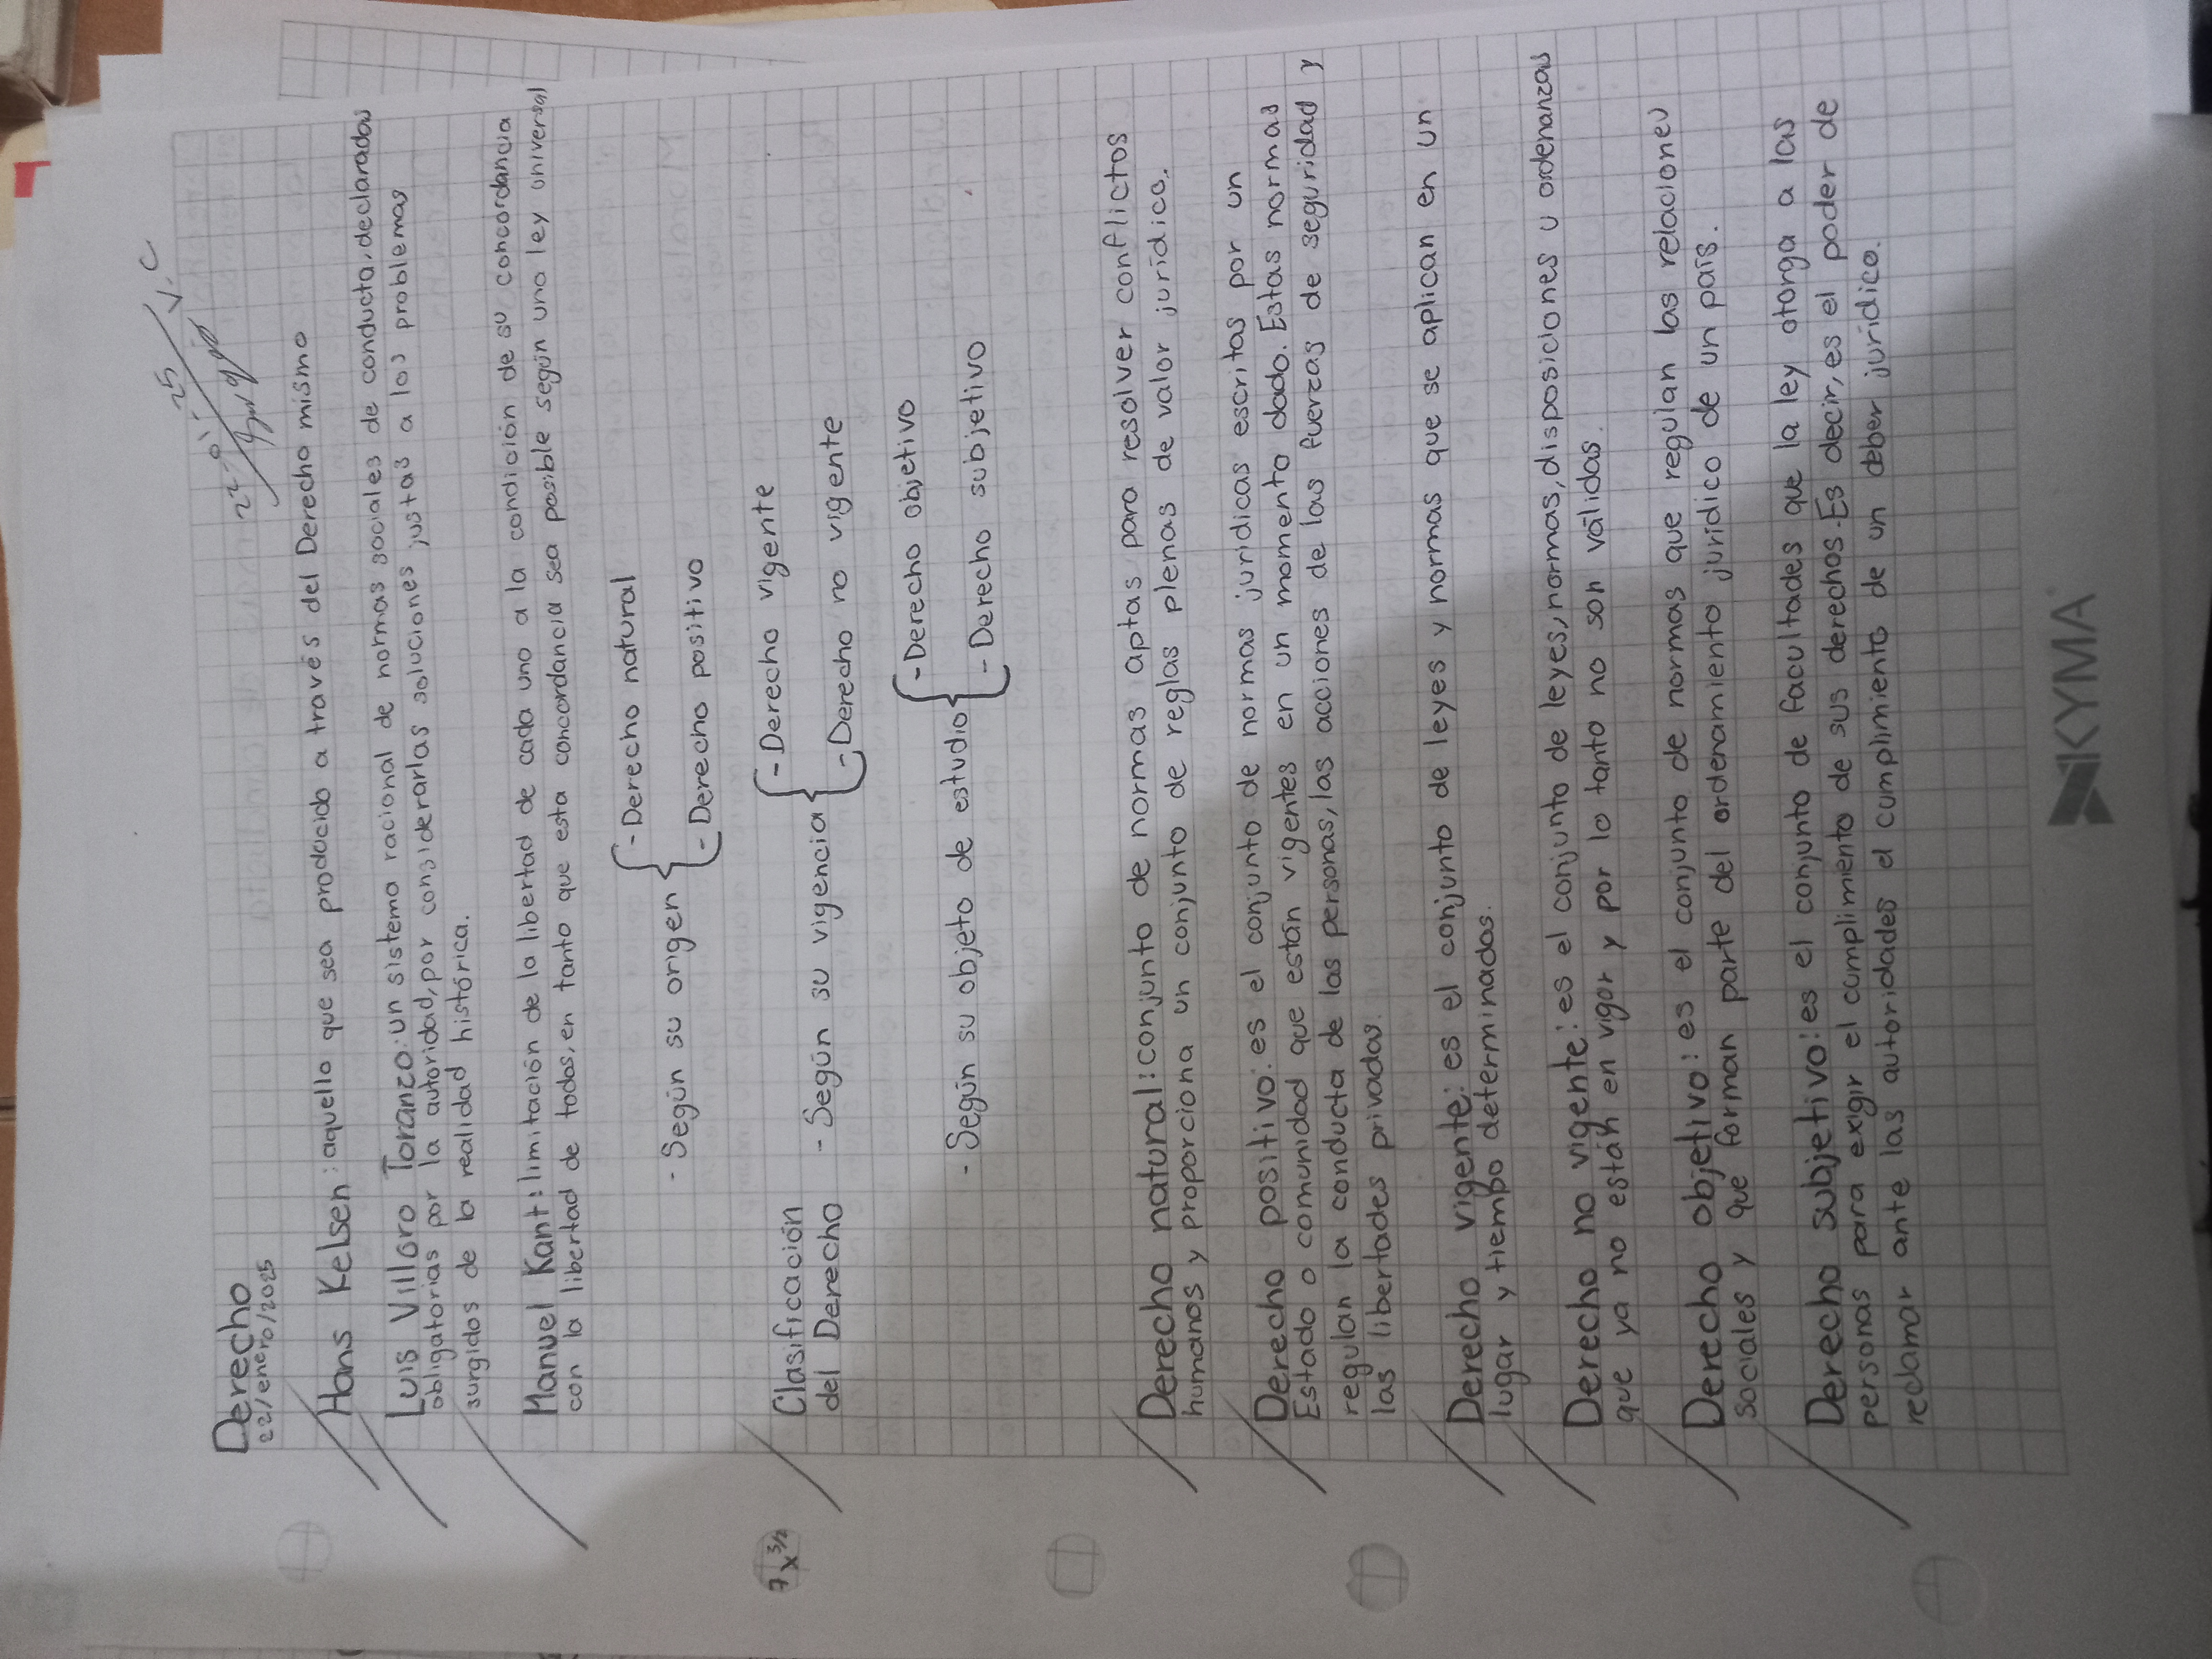 22-01-25 V.C
Derecho
22/enero/2025
Hans Kelsen: aquello que sea producido a través del Derecho mismo
Luis Villoro Toranzo: un sistema racional de normas sociales de conducta, declaradas
obligatorias por la autoridad, por considerarlas soluciones justas a los problemas
surgidos de la realidad histórica.
Manuel Kant: limitación de la libertad de cada uno a la condición de su concordancia
con la libertad de todos, en tanto que esta concordancia sea posible según una ley universal
- Derecho natural
- Según su origen
- Derecho positivo
- Derecho vigente
Clasificación
del Derecho
- Según su vigencia
- Derecho no vigente
- Derecho objetivo
- Según su objeto de estudio
- Derecho subjetivo
7x3/2
Derecho natural: conjunto de normas aptas para resolver conflictos
humanos y proporciona un conjunto de reglas plenas de valor jurídico.
Derecho positivo: es el conjunto de normas jurídicas escritas por un
Estado o comunidad que están vigentes en un momento dado. Estas normas
regulan la conducta de las personas, las acciones de las fuerzas de seguridad y
las libertades privadas.
Derecho vigente: es el conjunto de leyes y normas que se aplican en un
lugar y tiempo determinados.
Derecho no vigente: es el conjunto de leyes, normas, disposiciones u ordenanzas
que ya no están en vigor y por lo tanto no son válidas.
Derecho objetivo: es el conjunto de normas que regulan las relaciones
sociales y que forman parte del ordenamiento jurídico de un país.
Derecho subjetivo: es el conjunto de facultades que la ley otorga a las
personas para exigir el cumplimiento de sus derechos. Es decir, es el poder de
reclamar ante las autoridades el cumplimiento de un deber jurídico.
KYMA